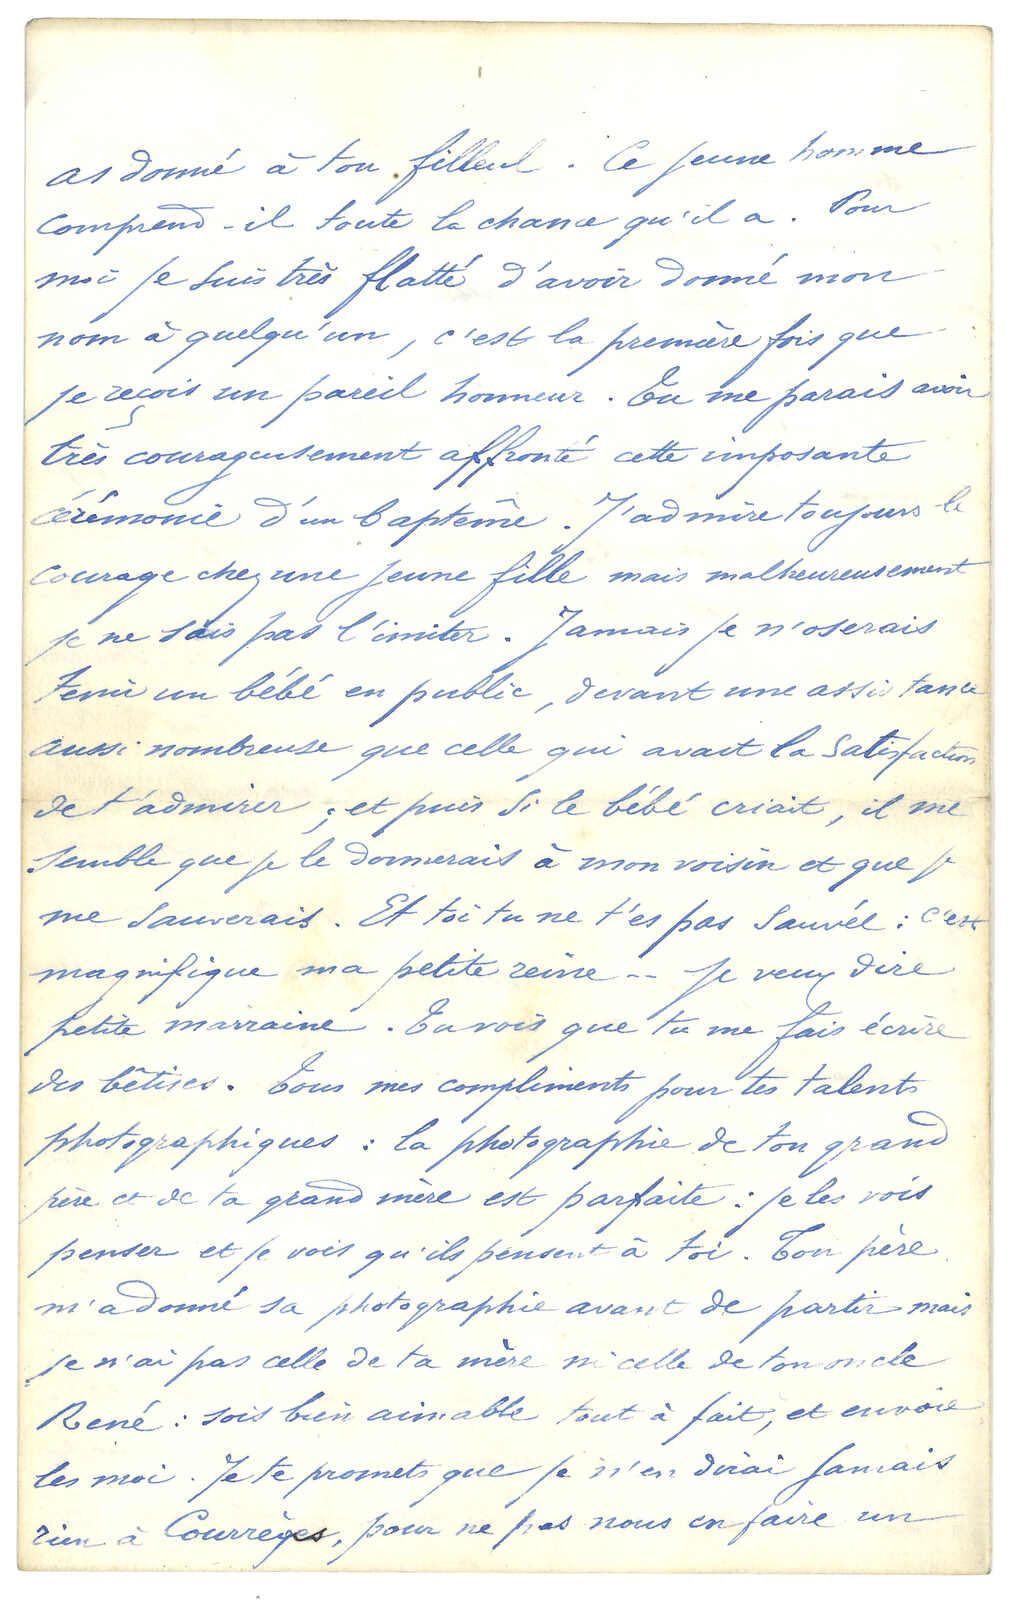 as donné à ton filleul. Ce jeune homme
comprend-il toute la chance qu'il a. Pour
moi je suis très flatté d'avoir donné mon
nom à quelqu'un, c'est la première fois que
je reçois un pareil honneur. Tu me parais avoir
très courageusement affronté cette imposante
cérémonie d'un baptême. J'admire toujours le
courage chez une jeune fille mais malheureusement
je ne sais pas l'imiter. Jamais je n'oserais
tenir un bébé en public, devant une assistance
aussi nombreuse que celle qui avait la satisfaction
de t'admirer ; et puis si le bébé criait, il me
semble que je le donnerais à mon voisin et que je
me sauverais. Et toi tu ne t'es pas sauvée : c'est
magnifique ma petite reine -- je veux dire
petite marraine. Tu vois que tu me fais écrire
des bêtises. Tous mes compliments pour tes talents
photographiques : la photographie de ton grand
père et de ta grand mère est parfaite : je les vois
penser et je vois qu'ils pensent à toi. Ton père
m'a donné sa photographie avant de partir mais
je n'ai pas celle de ta mère ni celle de ton oncle
René : sois bien aimable tout à fait, et envoie
les moi. Je te promets que je n'en dirai jamais
rien à Courrèges, pour ne pas nous en faire un